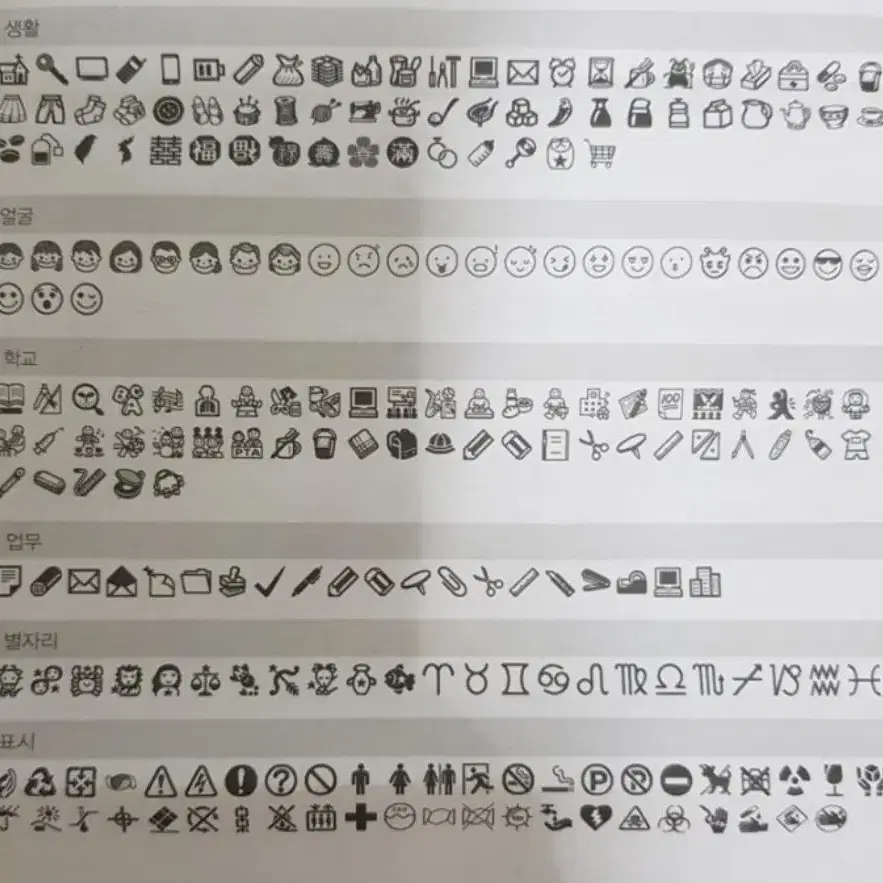 생활
囍 福
滿
얼굴
학교
100
PTA
업무
별자리
표시